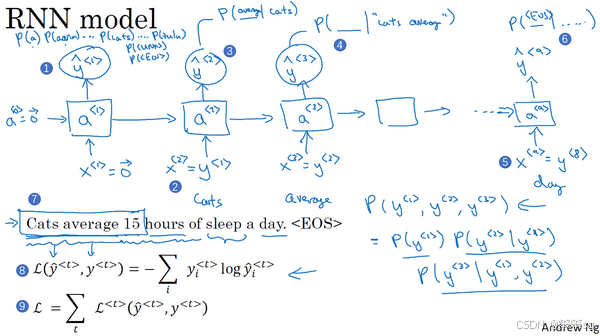 RNN model
P(a) P(aaron) ... P(cats) ... P(zulu)
P(<UNK>)
P(<EOS>)
P(average | cats)
P(__ | "cats average")
P(<EOS> | ......)
1 ŷ<1> 3 ŷ<2> 4 ŷ<3> 6 ŷ<9>
a<0>=0⃗ a<1> a<2> a<3> ...... a<9>
x<1>=0⃗ x<2>=y<1> x<3>=y<2> 5 x<9>=y<8>
2 Cats average day
7
Cats average 15 hours of sleep a day. <EOS>
P(y<1>, y<2>, y<3>)
= P(y<1>) P(y<2> | y<1>)
P(y<3> | y<1>, y<2>)
8 ℒ(ŷ<t>, y<t>) = −∑i yi<t> log ŷi<t>
9 ℒ = ∑t ℒ<t>(ŷ<t>, y<t>)
Andrew Ng